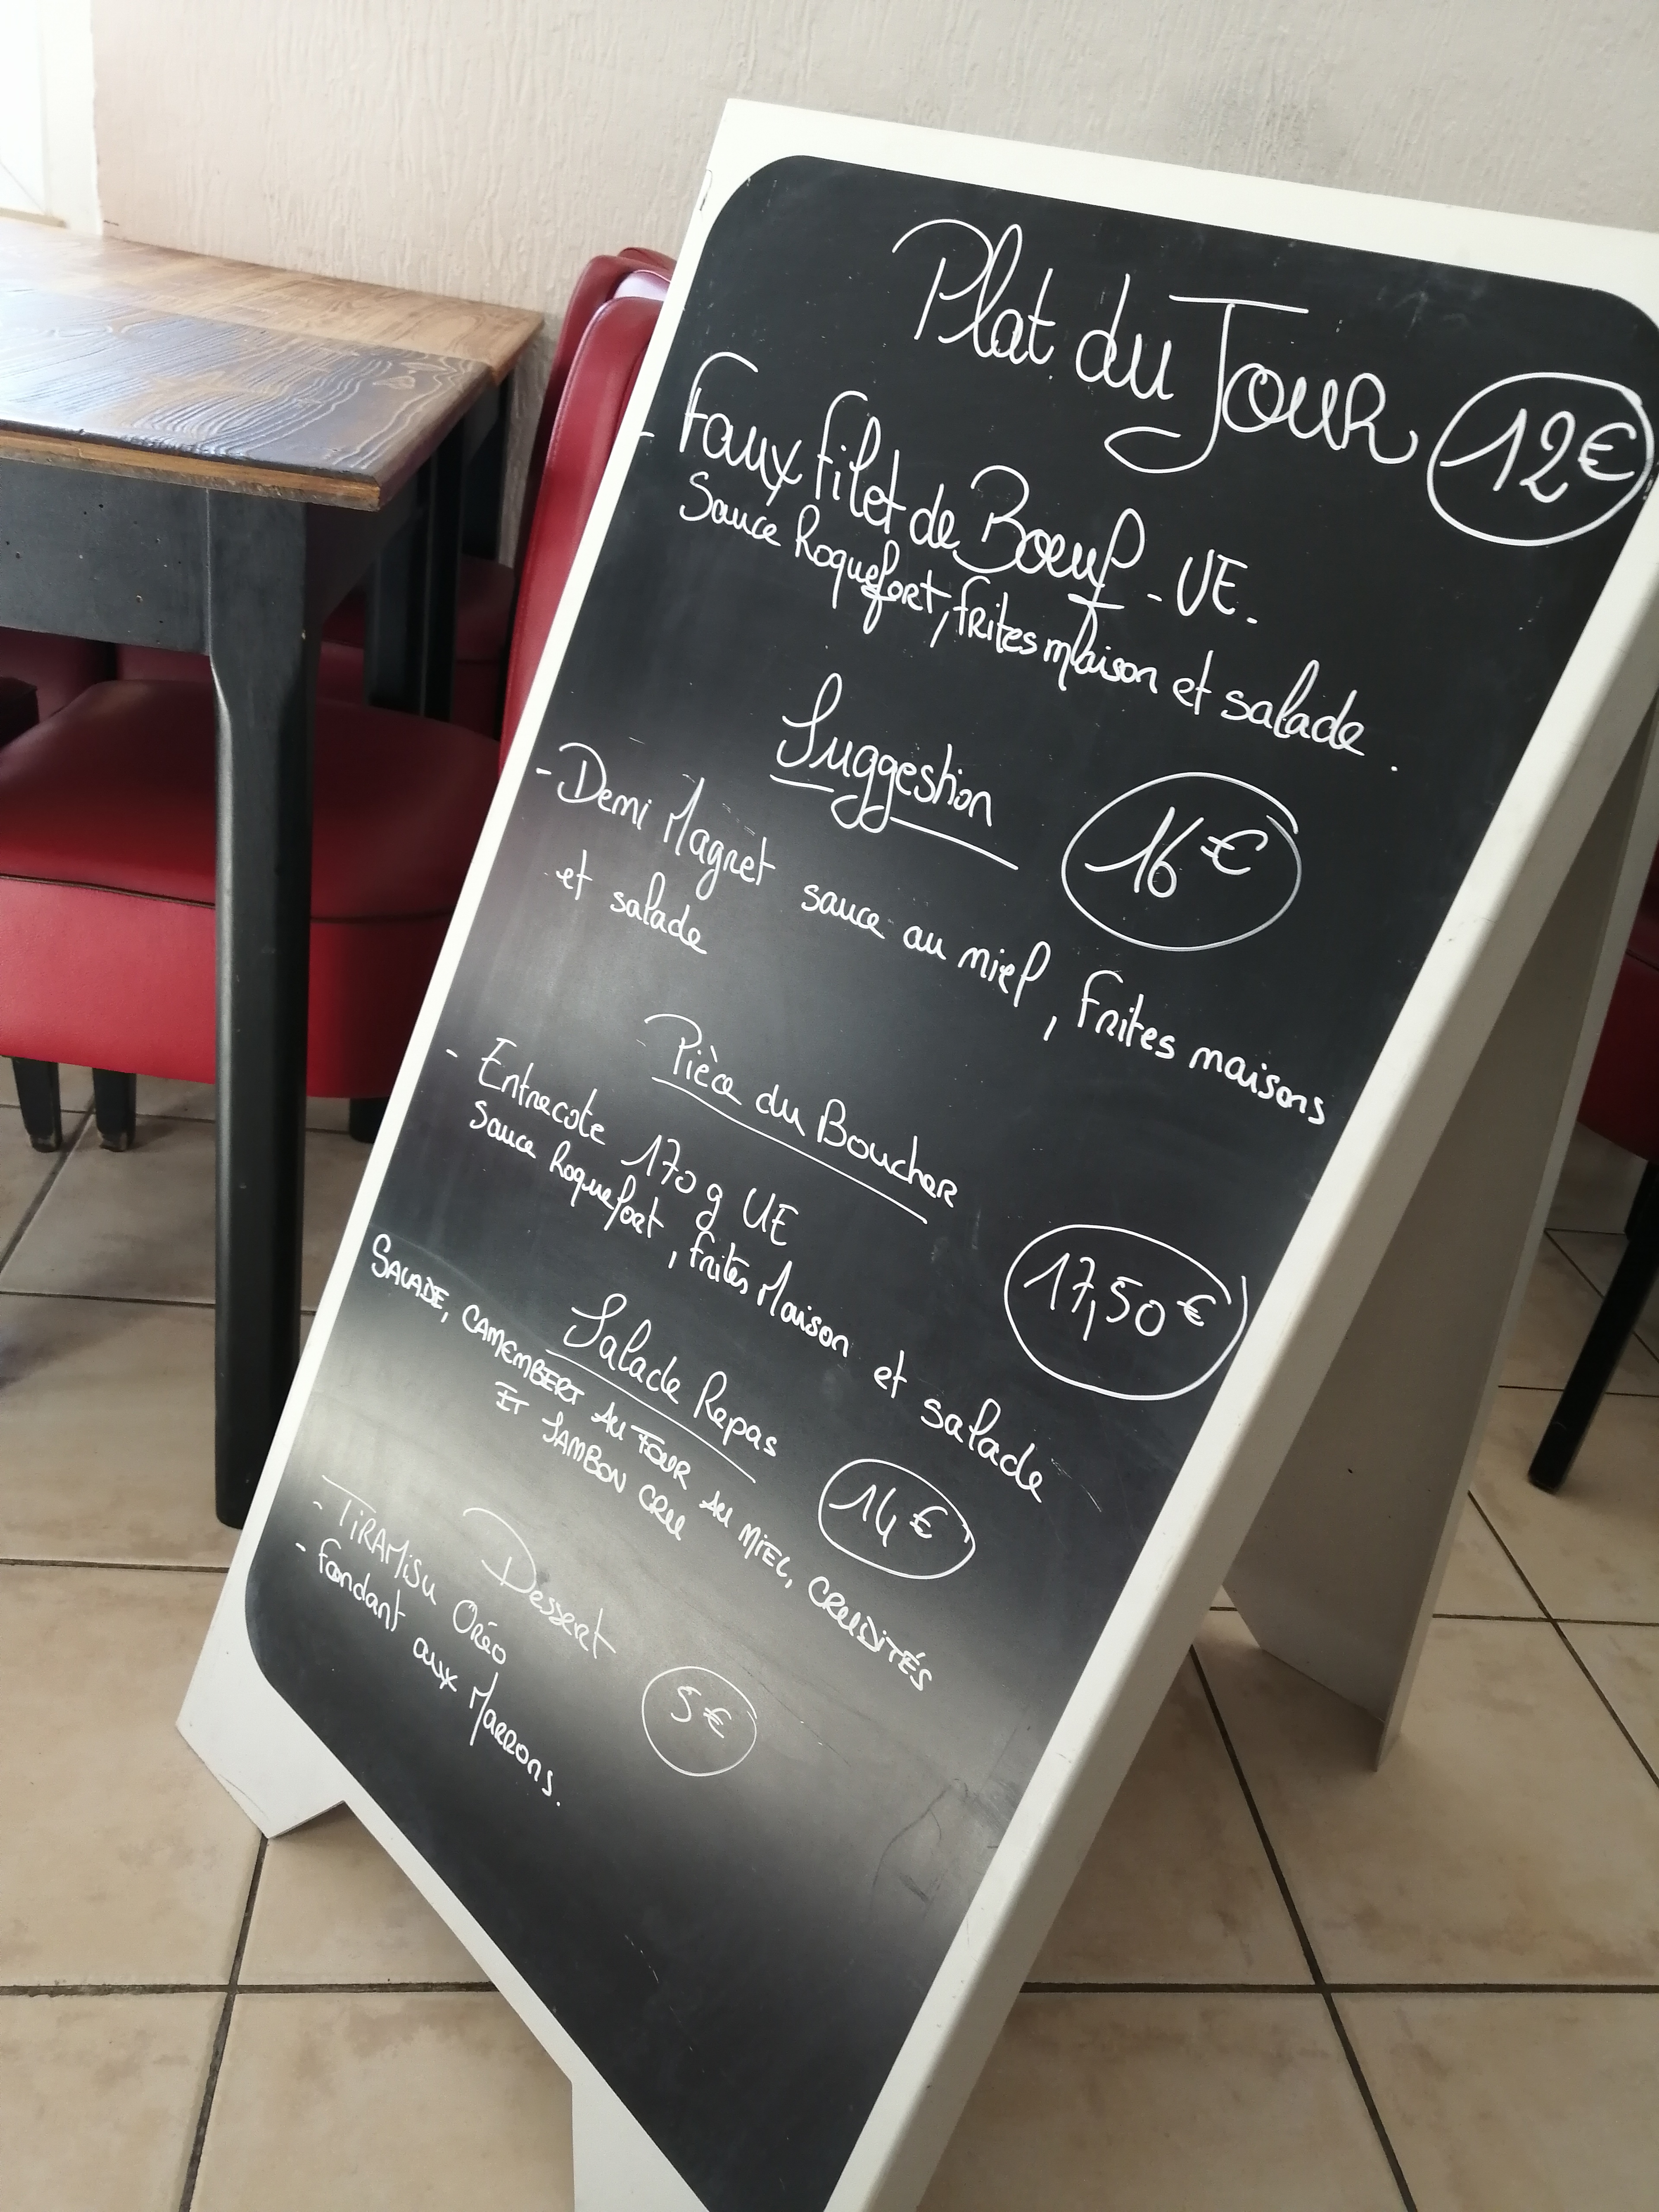 Plat du Jour 12€
- Faux filet de Bœuf - UE.
Sauce Roquefort, frites maison et salade.
Suggestion 16€
- Demi Magret sauce au miel, frites maisons
et salade
Pièce du Boucher
- Entrecote 170 g UE 17,50€
Sauce Roquefort, frites Maison et salade
Salade Repas 14€
SALADE, CAMEMBERT AU FOUR AU MIEL, CRUDITÉS
ET JAMBON CRU
Dessert 5€
- TiRAMiSU Oréo
- fondant aux Marrons.